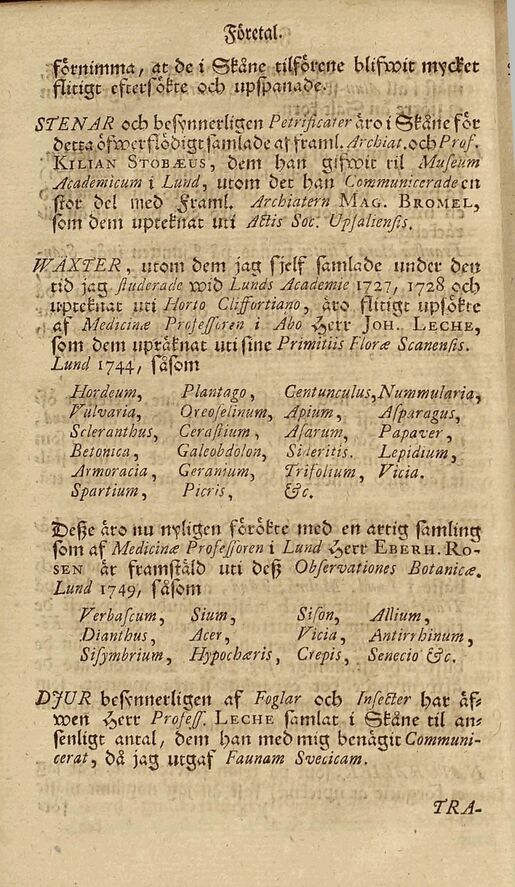 Företal.
förnimma, at de i Skåne tilförene blifwit mycket
flitigt eftersökte och upspanade.
STENAR och besynnerligen Petrificater äro i Skåne för
detta öfwerflödigt samlade af framl. Archiat. och Prof.
KILIAN STOBÆUS, dem han gifwit til Museum
Academicum i Lund, utom det han Communicerade en
stor del med Framl. Archiatern MAG. BROMEL,
som dem upteknat uti Actis Soc. Upsaliensis.
WÄXTER, utom dem jag sjelf samlade under den
tid jag studerade wid Lunds Academie 1727, 1728 och
upteknat uti Horto Cliffortiano, äro flitigt upsökte
af Medicinæ Professoren i Åbo Herr JOH. LECHE,
som dem upräknat uti sine Primitiis Floræ Scanensis.
Lund 1744, såsom
Hordeum, Plantago, Centunculus, Nummularia,
Vulvaria, Oreoselinum, Apium, Asparagus,
Scleranthus, Cerastium, Asarum, Papaver,
Betonica, Galeobdolon, Sideritis. Lepidium,
Armoracia, Geranium, Trifolium, Vicia.
Spartium, Picris, &c.
Desse äro nu nyligen förökte med en artig samling
som af Medicinæ Professoren i Lund Herr EBERH. RO-
SEN är framstäld uti dess Observationes Botanicæ.
Lund 1749, såsom
Verbascum, Sium, Sison, Allium,
Dianthus, Acer, Vicia, Antirrhinum,
Sisymbrium, Hypochæris, Crepis, Senecio &c.
DJUR besynnerligen af Foglar och Insecter har äf-
wen Herr Profess. LECHE samlat i Skåne til an-
senligt antal, dem han med mig benägit Communi-
cerat, då jag utgaf Faunam Svecicam.
TRA-